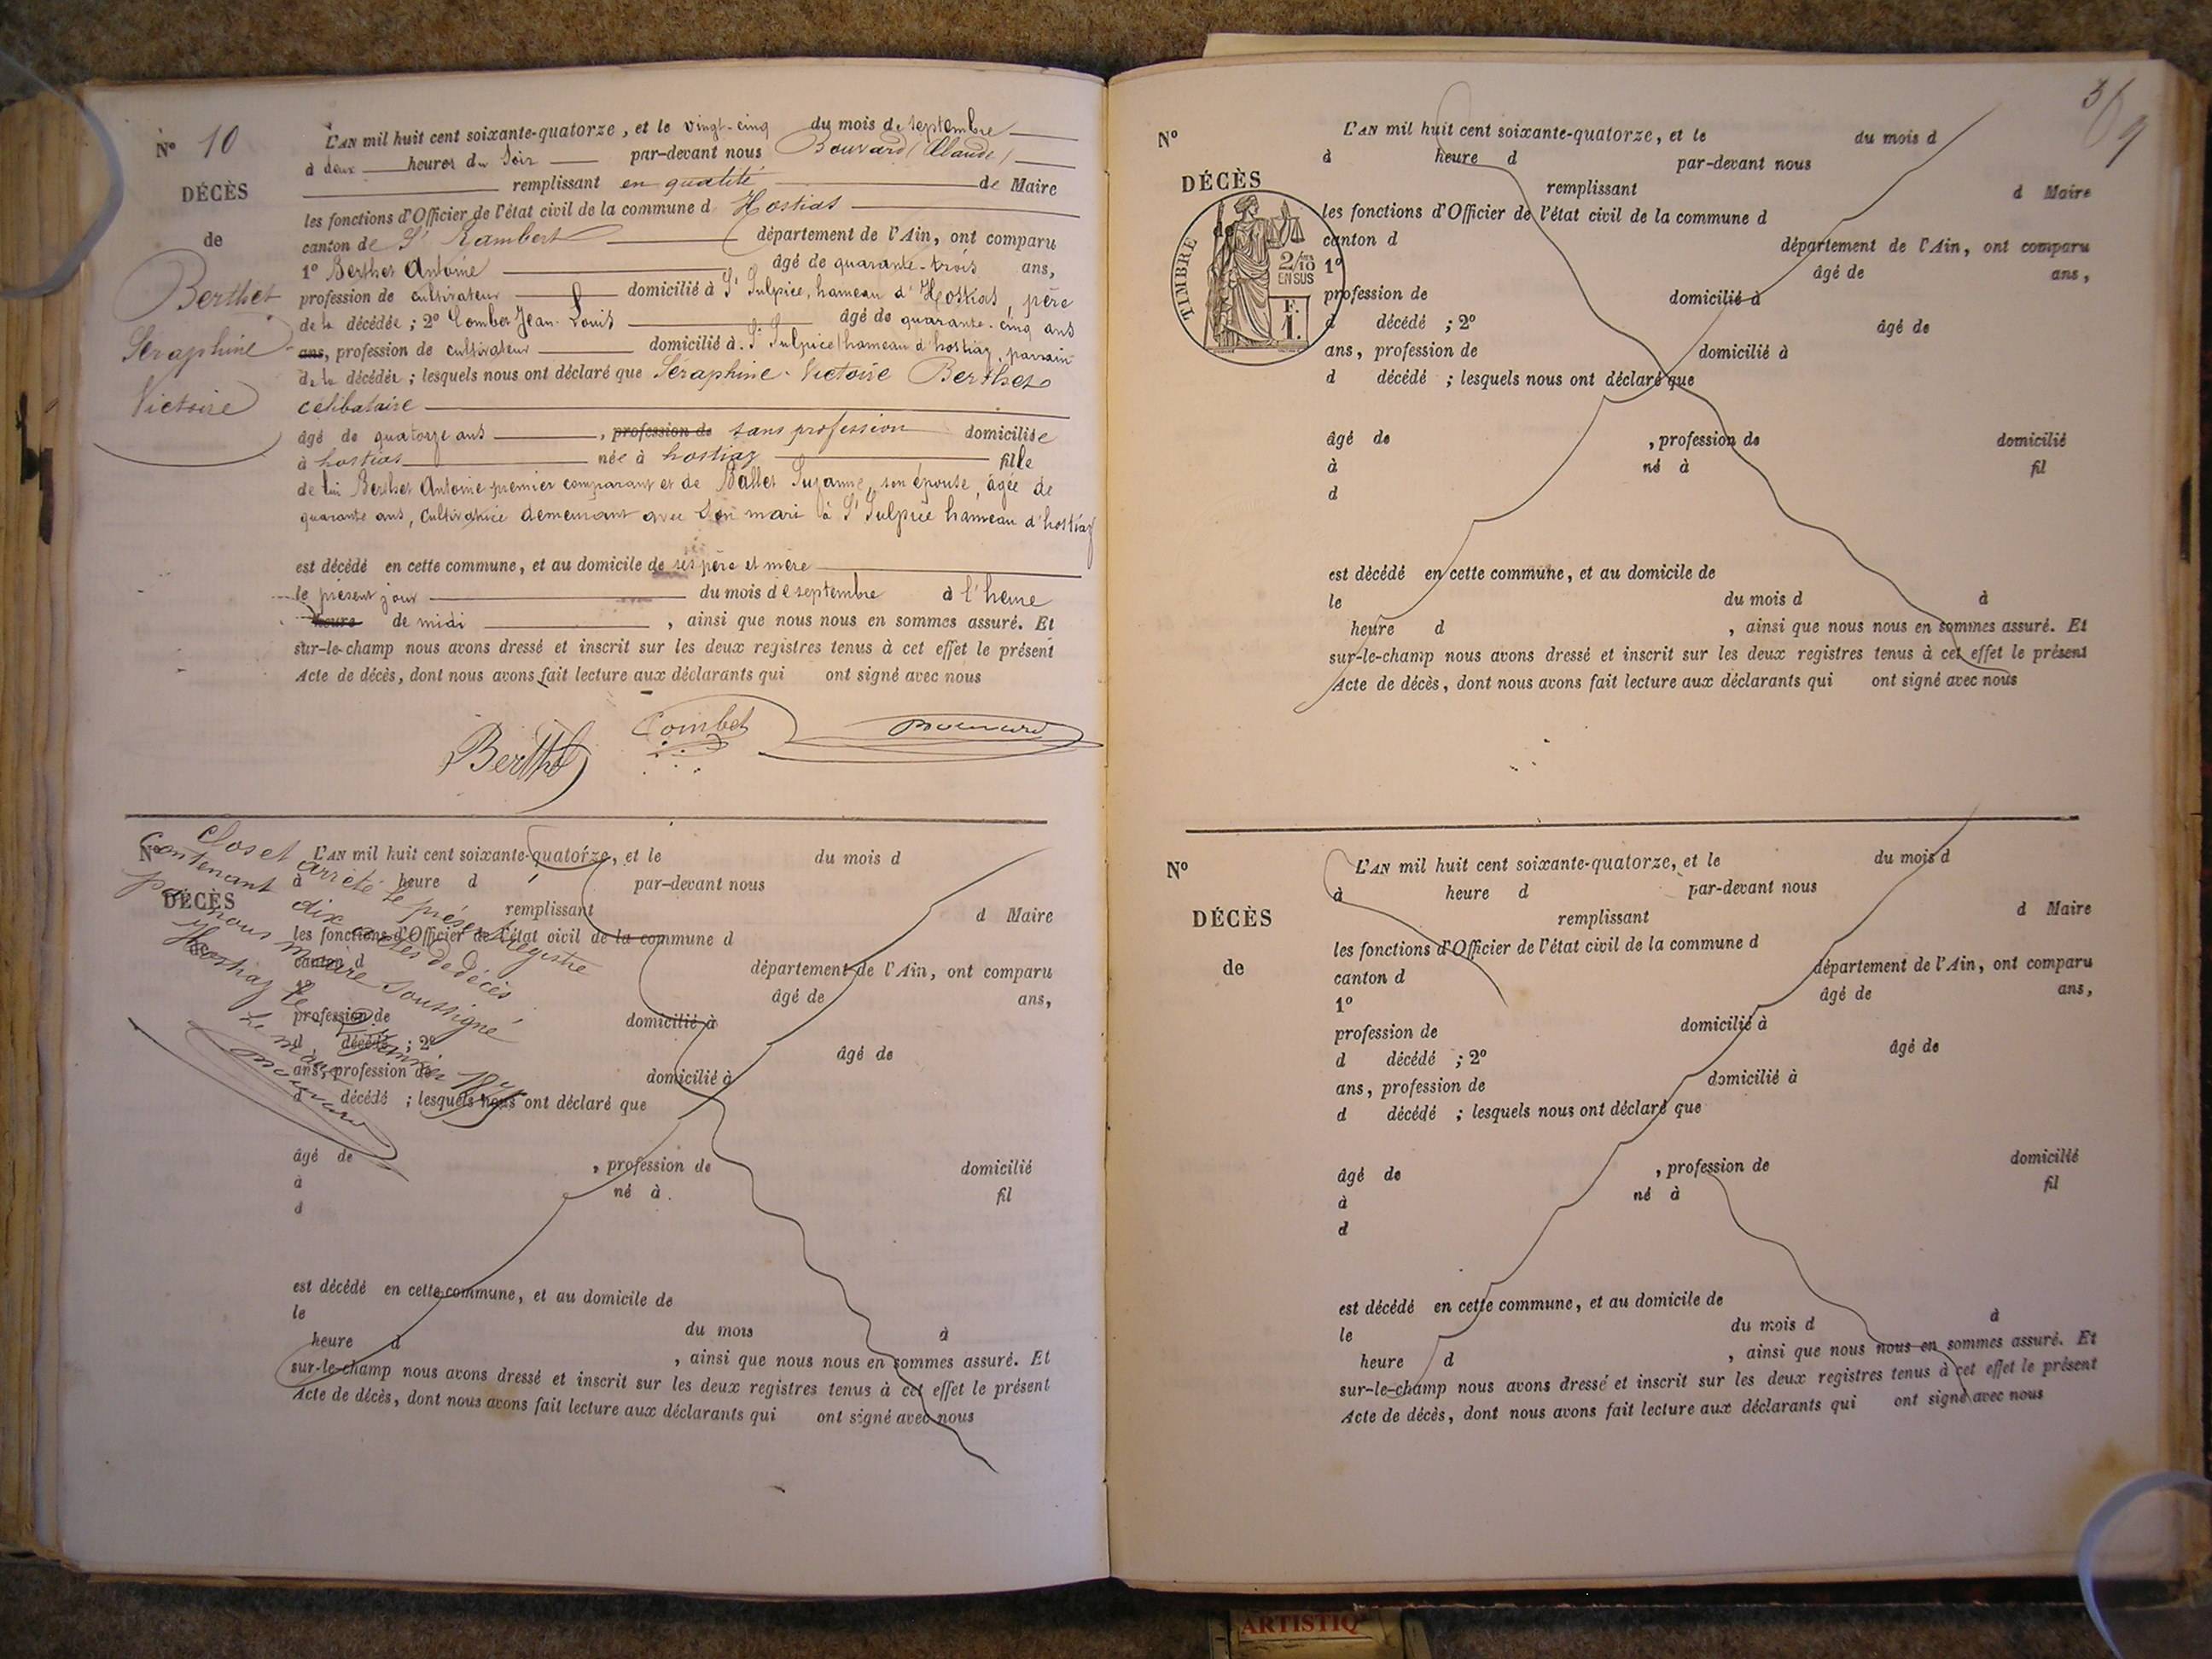 N° 10
DÉCÈS
de
Berthet
Séraphine
Victoire
L'AN mil huit cent soixante-quatorze, et le vingt-cinq du mois de septembre
à deux heures du soir par-devant nous Bouvard (Claude)
remplissant en qualité de Maire
les fonctions d'Officier de l'état civil de la commune d Hostias
canton de St Rambert département de l'Ain, ont comparu
1° Berthet Antoine âgé de quarante-trois ans,
profession de cultivateur domicilié à St Sulpice, hameau d'Hostias, père
de la décédée ; 2° Combet Jean-Louis âgé de quarante-cinq ans
ans, profession de cultivateur domicilié à St Sulpice (hameau d'hostiaz, parrain
de la décédée ; lesquels nous ont déclaré que Séraphine-Victoire Berthet
célibataire
âgé de quatorze ans, profession de sans profession domiciliée
à hostias née à hostiaz fille
de lui Berthet Antoine premier comparant et de Ballet Suzanne, son épouse, âgée de
quarante ans, cultivatrice demeurant avec son mari à St Sulpice hameau d'hostiaz
est décédé en cette commune, et au domicile de ses père et mère
le présent jour du mois de septembre à l'heure
heure de midi, ainsi que nous nous en sommes assuré. Et
sur-le-champ nous avons dressé et inscrit sur les deux registres tenus à cet effet le présent
Acte de décès, dont nous avons fait lecture aux déclarants qui ont signé avec nous
Berthet
Combet
Bouvard
Clos et arrêté le présent registre
contenant dix actes de décès
par nous maire soussigné
Hostiaz le 1er Janvier 1875
Le maire
Bouvard
N°
DÉCÈS
de
L'AN mil huit cent soixante-quatorze, et le du mois d
à heure d par-devant nous
remplissant d Maire
les fonctions d'Officier de l'état civil de la commune d
canton d département de l'Ain, ont comparu
1° âgé de ans,
profession de domicilié à
d décédé ; 2° âgé de
ans, profession de domicilié à
d décédé ; lesquels nous ont déclaré que
âgé de , profession de domicilié
à né à fil
d
est décédé en cette commune, et au domicile de
le du mois à
heure d , ainsi que nous nous en sommes assuré. Et
sur-le-champ nous avons dressé et inscrit sur les deux registres tenus à cet effet le présent
Acte de décès, dont nous avons fait lecture aux déclarants qui ont signé avec nous
N°
DÉCÈS
de
TIMBRE
2/10
EN SUS
F.
1.
L'AN mil huit cent soixante-quatorze, et le du mois d
à heure d par-devant nous
remplissant d Maire
les fonctions d'Officier de l'état civil de la commune d
canton d département de l'Ain, ont comparu
1° âgé de ans,
profession de domicilié à
d décédé ; 2° âgé de
ans, profession de domicilié à
d décédé ; lesquels nous ont déclaré que
âgé de , profession de domicilié
à né à fil
d
est décédé en cette commune, et au domicile de
le du mois d à
heure d , ainsi que nous nous en sommes assuré. Et
sur-le-champ nous avons dressé et inscrit sur les deux registres tenus à cet effet le présent
Acte de décès, dont nous avons fait lecture aux déclarants qui ont signé avec nous
N°
DÉCÈS
de
L'AN mil huit cent soixante-quatorze, et le du mois d
à heure d par-devant nous
remplissant d Maire
les fonctions d'Officier de l'état civil de la commune d
canton d département de l'Ain, ont comparu
1° âgé de ans,
profession de domicilié à
d décédé ; 2° âgé de
ans, profession de domicilié à
d décédé ; lesquels nous ont déclaré que
âgé de , profession de domicilié
à né à fil
d
est décédé en cette commune, et au domicile de
le du mois d à
heure d , ainsi que nous nous en sommes assuré. Et
sur-le-champ nous avons dressé et inscrit sur les deux registres tenus à cet effet le présent
Acte de décès, dont nous avons fait lecture aux déclarants qui ont signé avec nous
ARTISTIQ